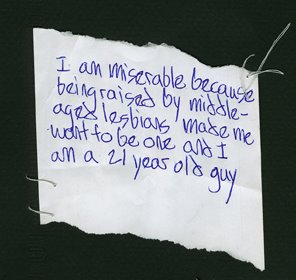 I am miserable because
being raised by middle-
aged lesbians made me
want to be one and I
am a 21 year old guy